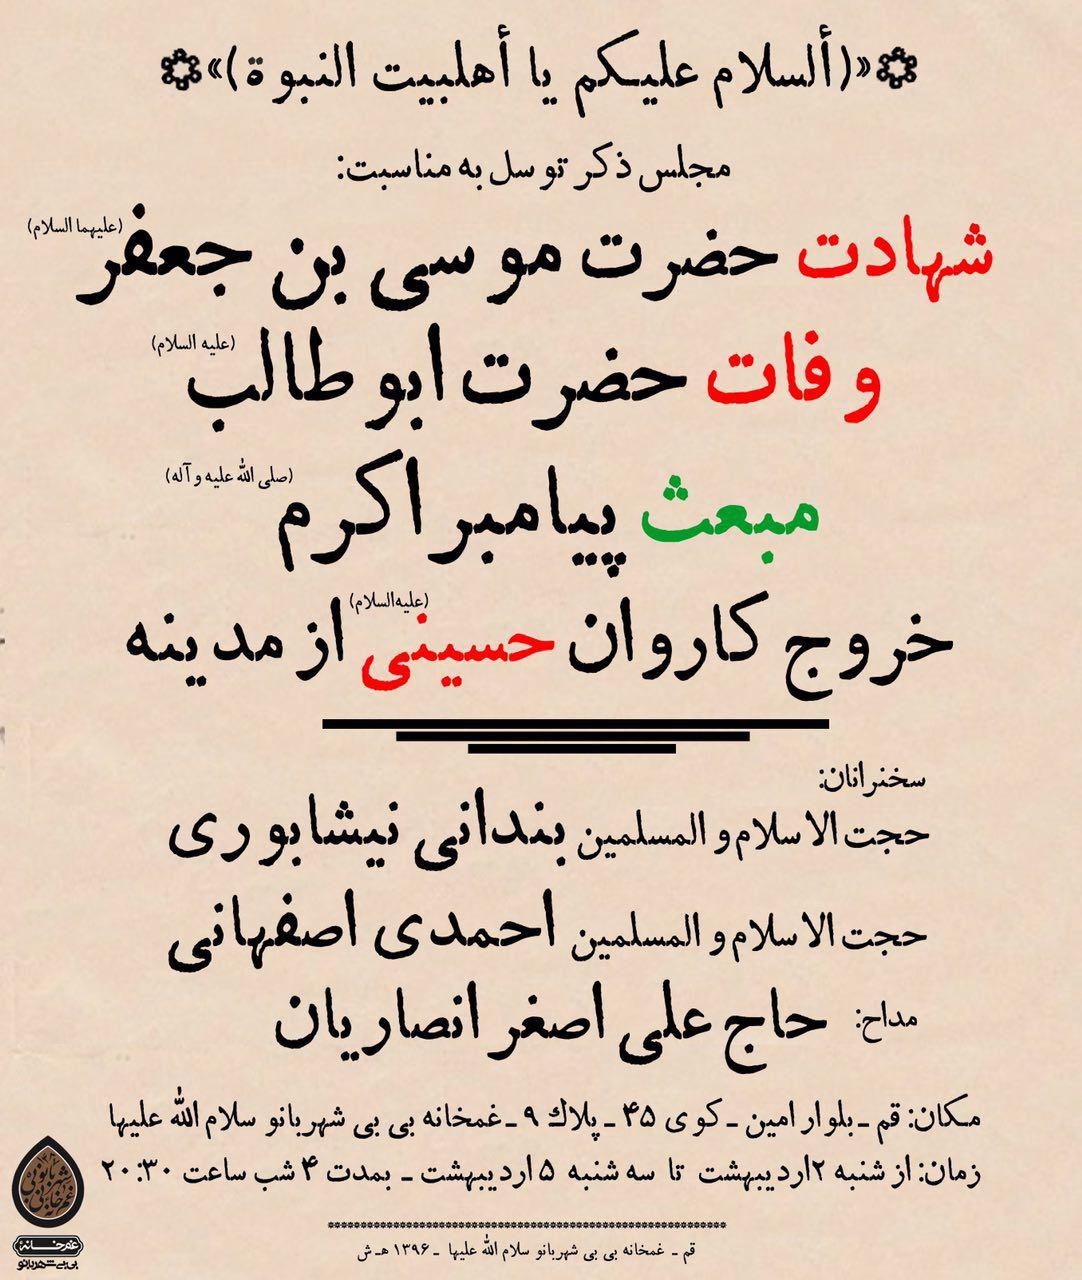 «(ألسلام علیکم یا أهلبیت النبوة)»
مجلس ذکر توسل به مناسبت:
شهادت حضرت موسی بن جعفر (علیهما السلام)
وفات حضرت ابوطالب (علیه السلام)
مبعث پیامبر اکرم (صلی الله علیه و آله)
خروج کاروان حسینی (علیه السلام) از مدینه
سخنرانان:
حجت الاسلام و المسلمین بندانی نیشابوری
حجت الاسلام و المسلمین احمدی اصفهانی
مداح: حاج علی اصغر انصاریان
مکان: قم ـ بلوار امین ـ کوی ۴۵ ـ پلاك ۹ ـ غمخانه بی بی شهربانو سلام الله علیها
زمان: از شنبه ۲ اردیبهشت تا سه شنبه ۵ اردیبهشت ـ بمدت ۴ شب ساعت ۲۰:۳۰
قم ـ غمخانه بی بی شهربانو سلام الله علیها ـ ۱۳۹۶ هـ ش
غمخانهٔ
بی بی شهربانو